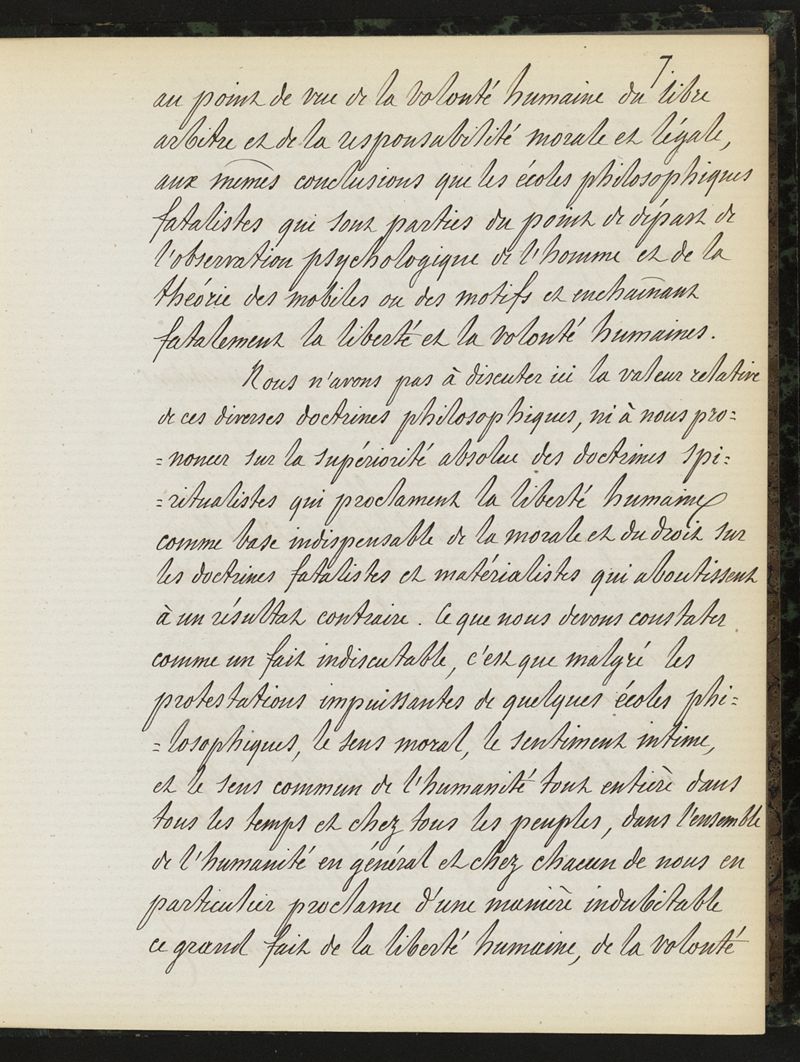 7.
au point de vue de la volonté humaine du libre
arbitre et de la responsabilité morale et légale,
aux mêmes conclusions que les écoles philosophiques
fatalistes qui sont parties du point de départ de
l'observation psychologique de l'homme et de la
théorie des mobiles ou des motifs et enchaînant
fatalement la liberté et la volonté humaines.
Nous n'avons pas à discuter ici la valeur relative
de ces diverses doctrines philosophiques, ni à nous pro=
=noncer sur la supériorité absolue des doctrines spi=
=ritualistes qui proclament la liberté humaine
comme base indispensable de la morale et du droit sur
les doctrines fatalistes et matérialistes qui aboutissent
à un résultat contraire. Ce que nous devons constater
comme un fait indiscutable, c'est que malgré les
protestations impuissantes de quelques écoles phi=
=losophiques, le sens moral, le sentiment intime,
et le sens commun de l'humanité tout entière dans
tous les temps et chez tous les peuples, dans l'ensemble
de l'humanité en général et chez chacun de nous en
particulier proclame d'une manière indubitable
ce grand fait de la liberté humaine, de la volonté